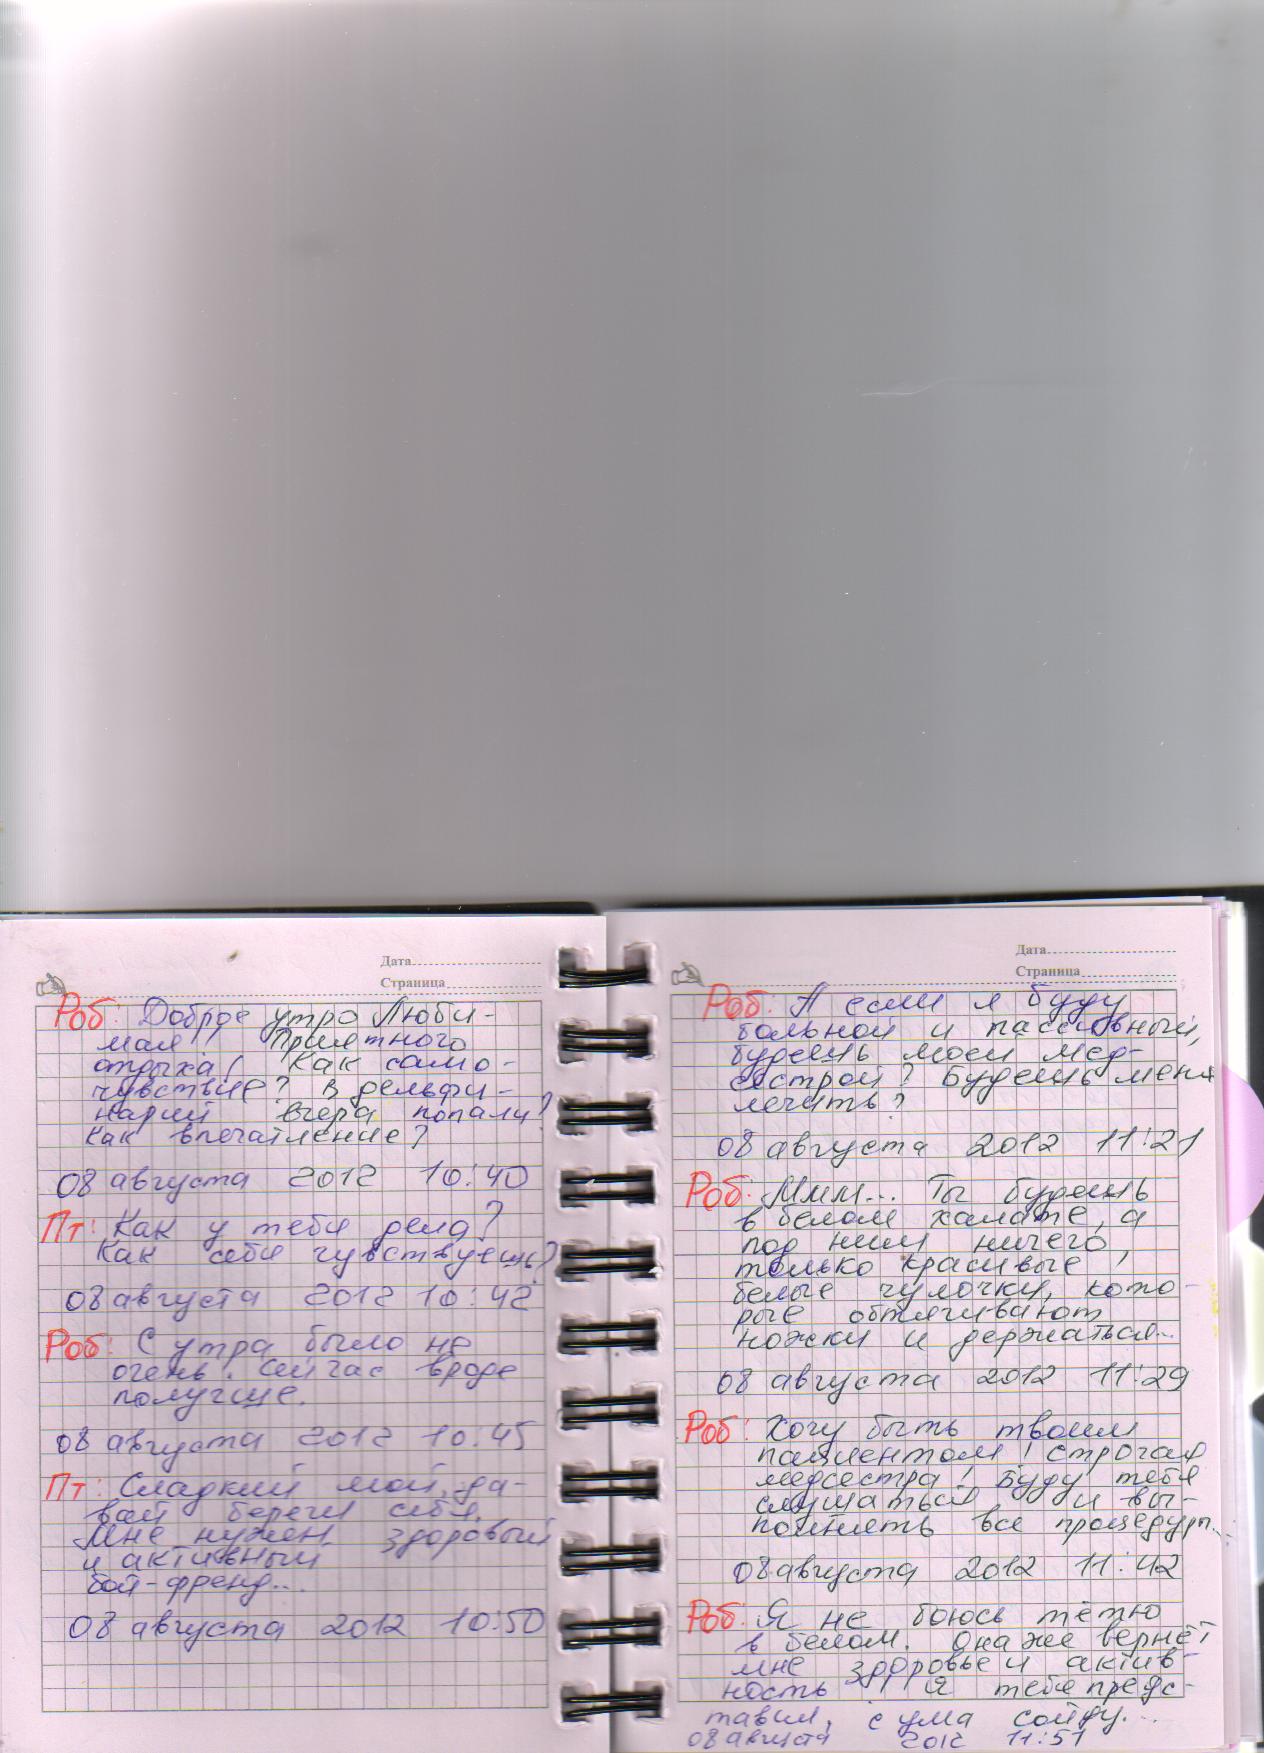 Дата
Страница
Роб: Доброе утро Люби-
мая! Приятного
отдыха! Как само-
чувствие? В дельфи-
нарий вчера попали?
Как впечатление?
08 августа 2012 10:40
Пт: Как у тебя дела?
Как себя чувствуешь?
08 августа 2012 10:42
Роб: С утра было не
очень. Сейчас вроде
получше.
08 августа 2012 10:45
Пт: Сладкий мой, да-
вай береги себя.
Мне нужен здоровый
и активный
бой-френд...
08 августа 2012 10:50
Дата
Страница
Роб: А если я буду
больной и пассивный,
будешь моей мед-
сестрой? Будешь меня
лечить?
08 августа 2012 11:21
Роб: Ммм... Ты будешь
в белом халате, а
под ним ничего,
только красивые
белые чулочки, кото-
рые обтягивают
ножки и держаться...
08 августа 2012 11:29
Роб: Хочу быть твоим
пациентом! Строгая
медсестра! Буду тебя
слушаться и вы-
полнять все процедуры...
08 августа 2012 11:42
Роб: Я не боюсь тётю
в белом. Она же вернёт
мне здоровье и актив-
ность! Я тебя предс-
тавил, с ума сойду...
08 августа 2012 11:51